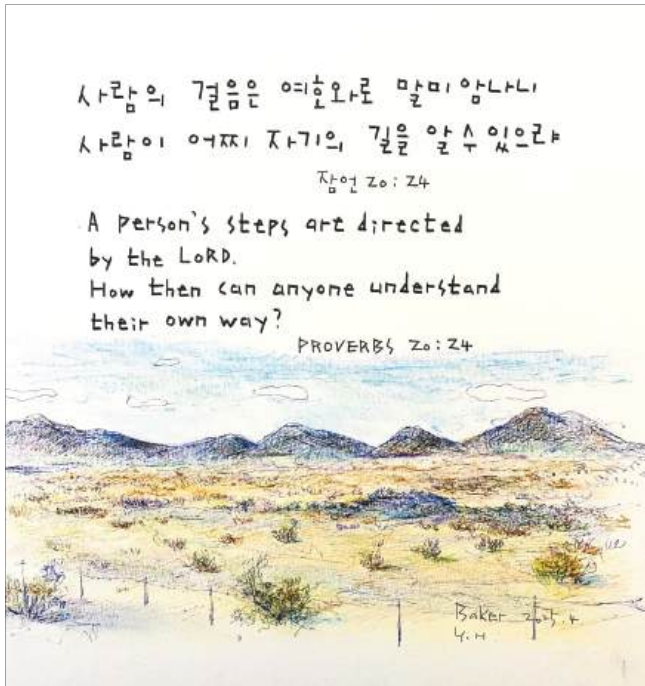 사람의 걸음은 여호와로 말미암나니
사람이 어찌 자기의 길을 알 수 있으랴
잠언 20:24
A person's steps are directed
by the LORD.
How then can anyone understand
their own way?
PROVERBS 20:24
Baker 2025.4
Y.H